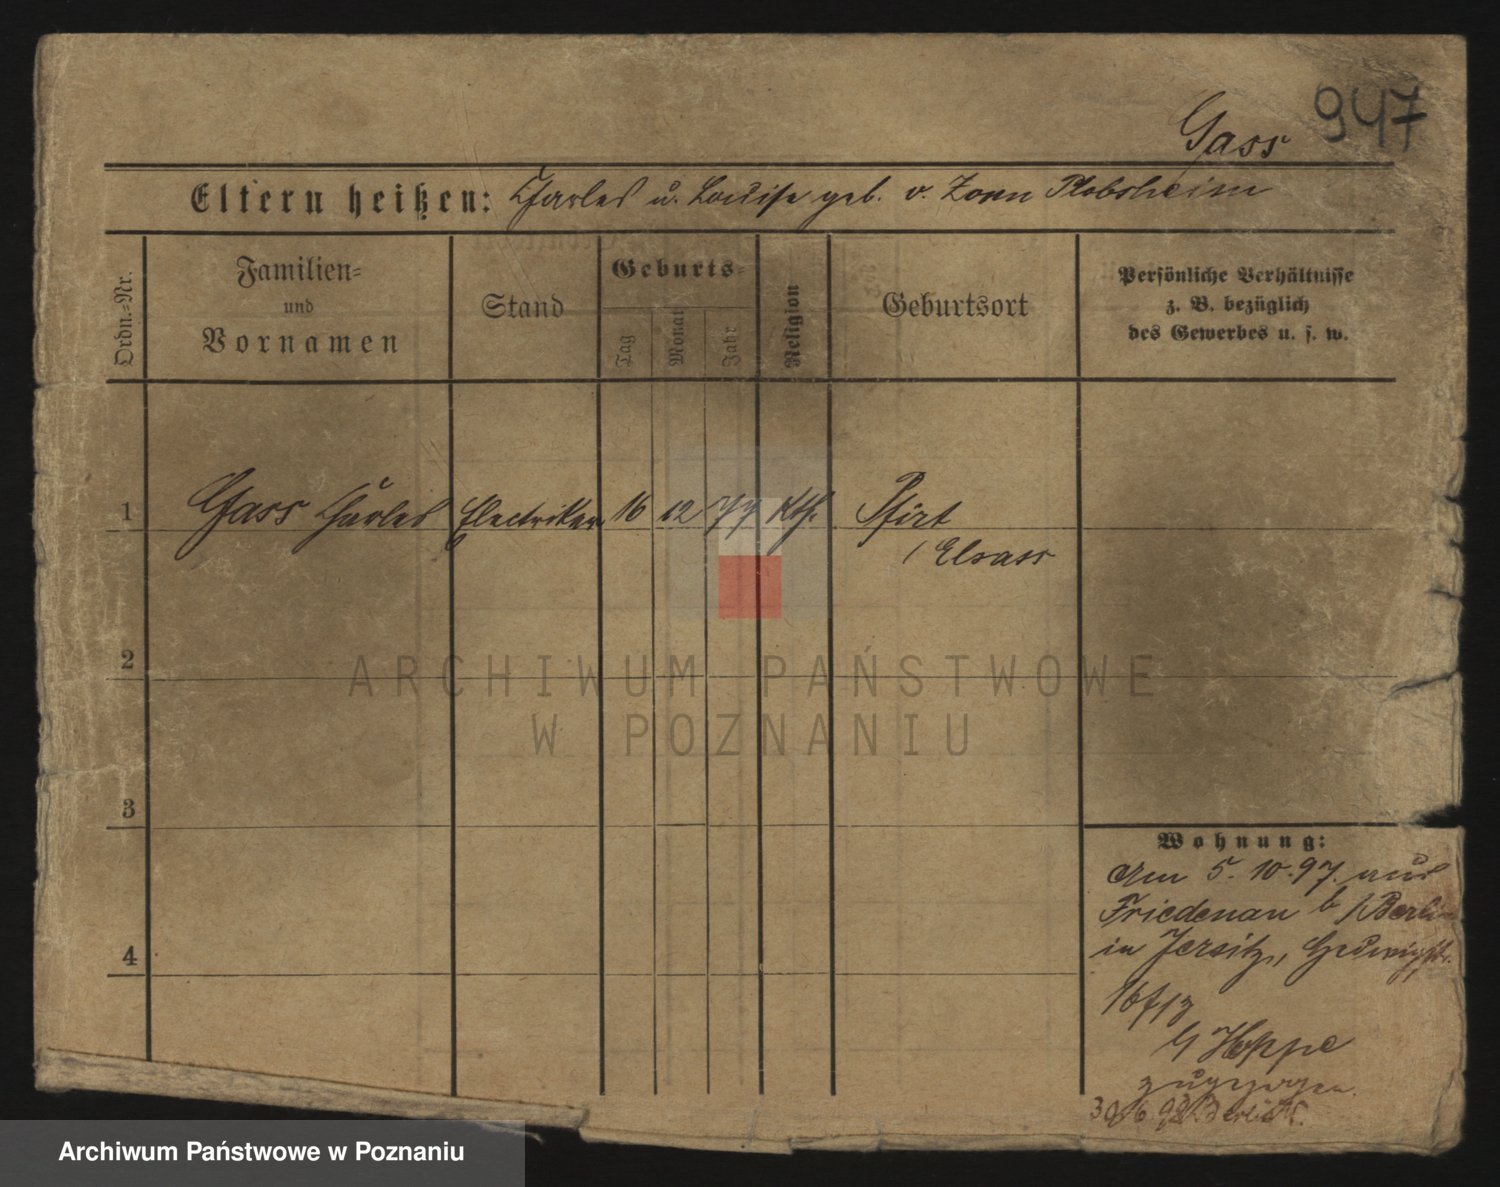 947
Gass
Eltern heißen: Charles u. Louise geb. v. Zorn Plobsheim
Ordn.-Nr.
Familien-
und
Vornamen
Stand
Geburts-
Tag
Monat
Jahr
Religion
Geburtsort
Persönliche Verhältnisse
z. B. bezüglich
des Gewerbes u. s. w.
1 Gass Charles Electriker 16 12 77 Kth. Pfirt
/ Elsass
2
ARCHIWUM PAŃSTWOWE
W POZNANIU
3
Wohnung:
Am 5. 10. 97. aus
Friedenau b/Berlin
in Jersitz, Hedwigstr.
b/ Hoppe
zugezogen.
4
Archiwum Państwowe w Poznaniu